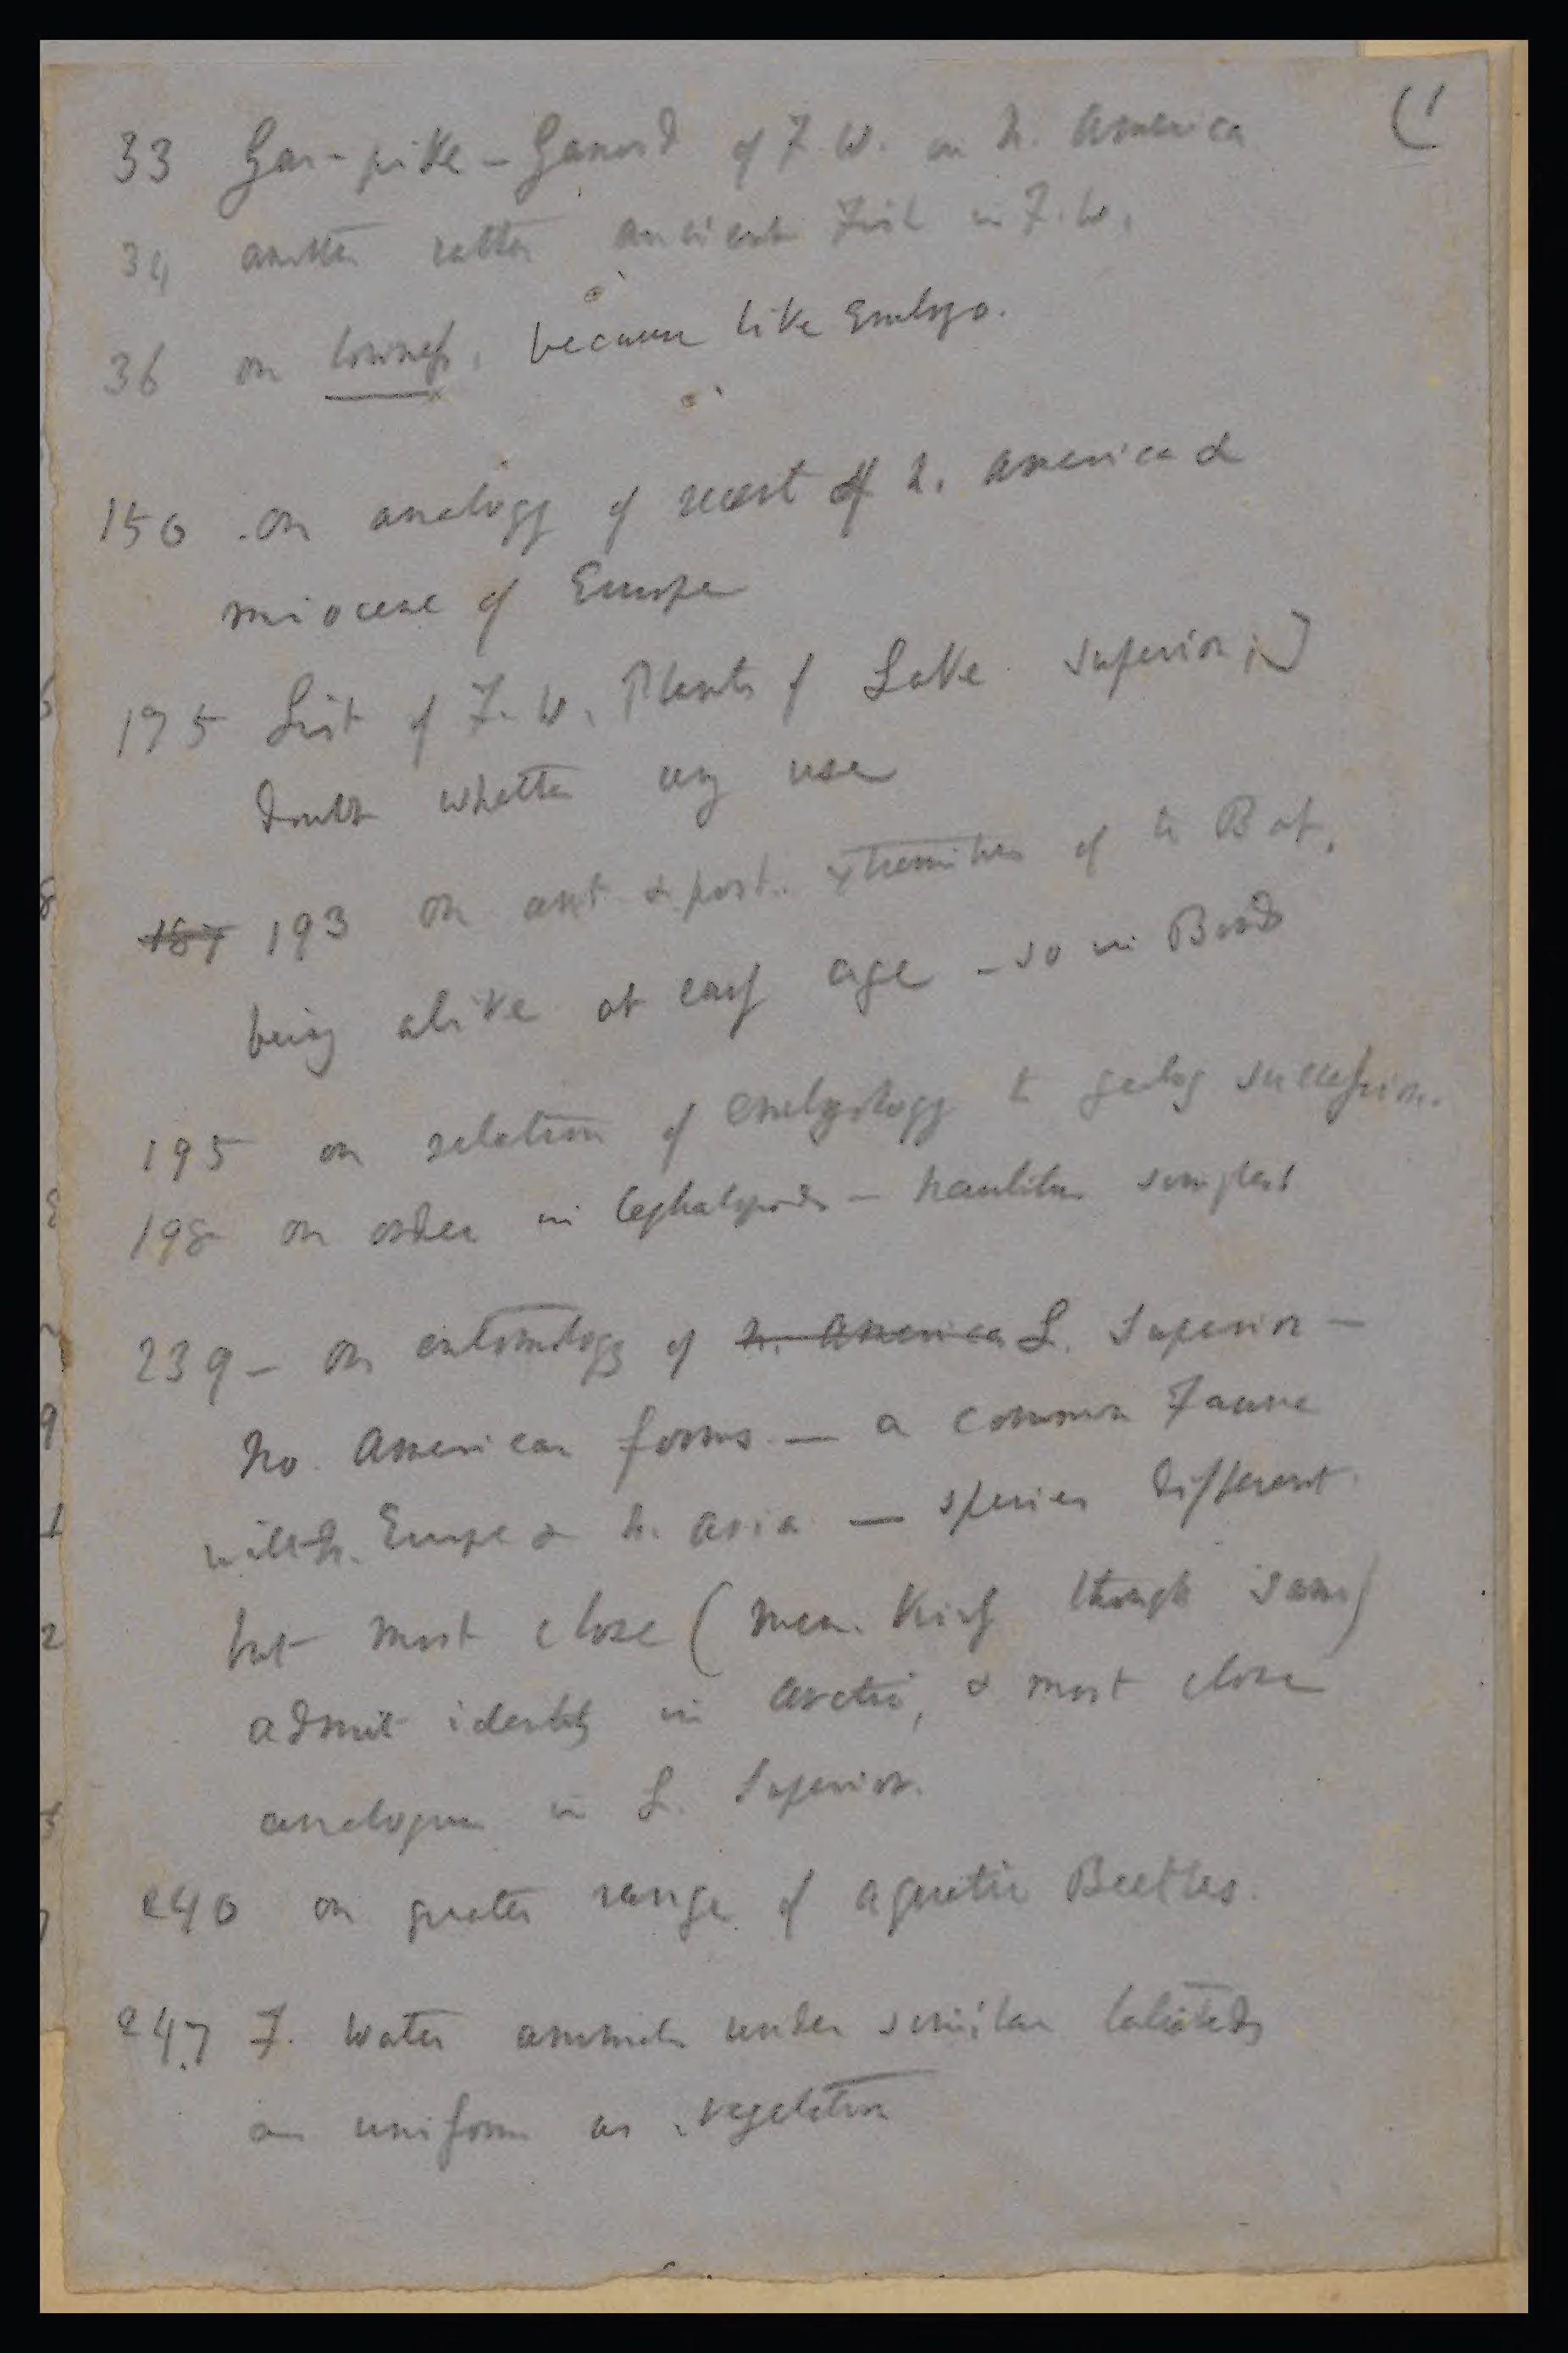 (1
33 Gar-pike – Ganoid of F. W. in N. America
34 another rather ancient Fish in F. W.
36 on lowness, because like Embryo.
150 on analogy of recent of N. America &
miocene of Europe
175 List of F. W. Plants of Lake Superior; I
doubt whether any use
187 193 On ant & post. extremities of the Bat,
being alike at early age – so in Birds
195 on relation of embryology to geolog succession.
198 on order in Cephalopods – Nautilus simplest
239 – On entomology of N. America L. Superior –
No American forms – a common Faune
with N. Europe & N. Asia – species different
but most close (Mem. Kirby though same)
admit identity in Arctic, & most close
analogues in L. Superior.
240 on greater range of aquatic Beetles.
247 F. Water animals under similar latitudes
as uniform as vegetation